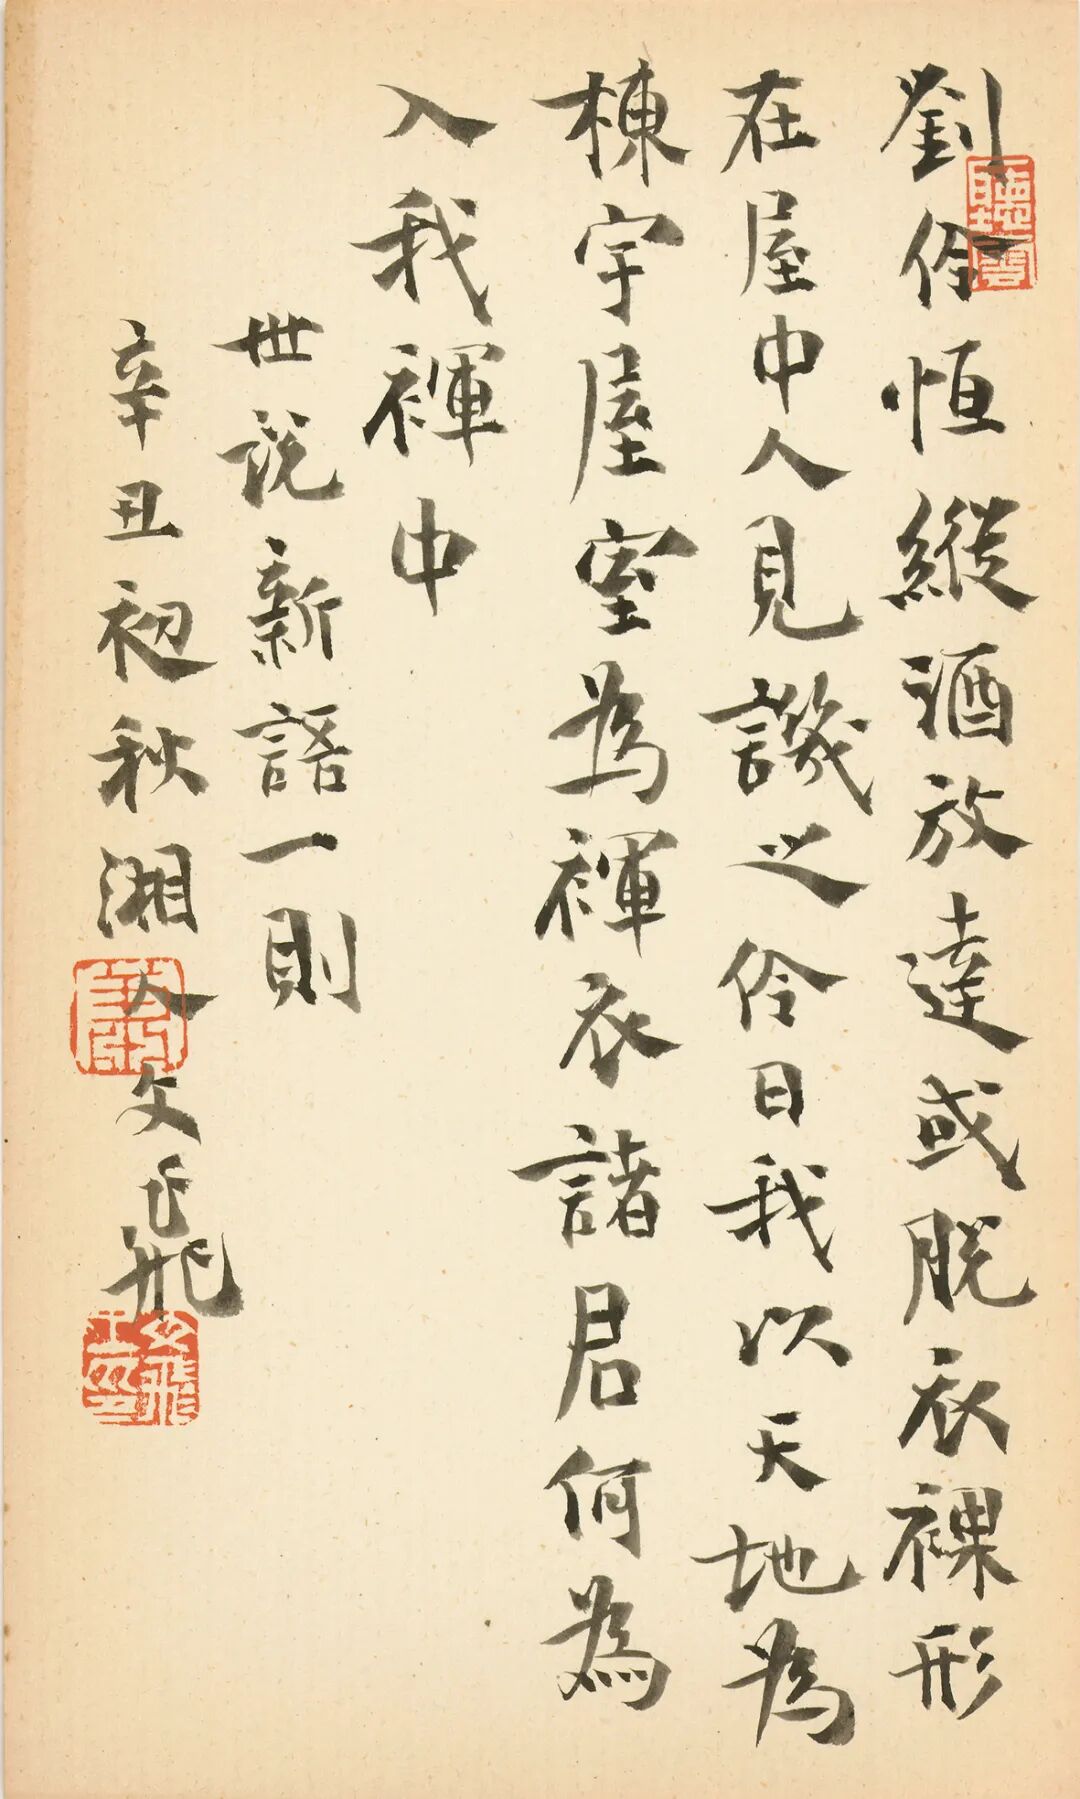 劉伶恒縱酒放達或脱衣裸形
在屋中人見譏之伶日我以天地為
棟宇屋室為褌衣諸君何為
入我褌中
世説新語一則
辛丑初秋湘人文正飛